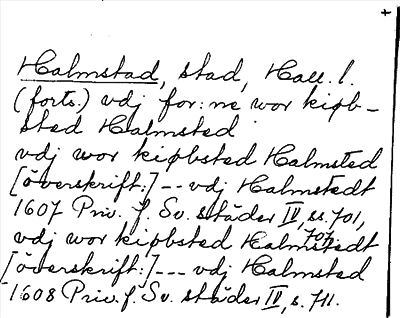 +
Halmstad, stad, Hall. l.
(forts.) vdj for:ne wor kiøb-
sted Halmsted
vdj wor kiøbsted Halmsted
[överskrift:] -- vdj Halmstedt
1607 Priv. f. Sv. städer IV, ss. 701,
707
vdj wor kiøbsted Halmstedt
[överskrift:] --- vdj Halmsted
1608 Priv. f. Sv. städer IV, s. 711.